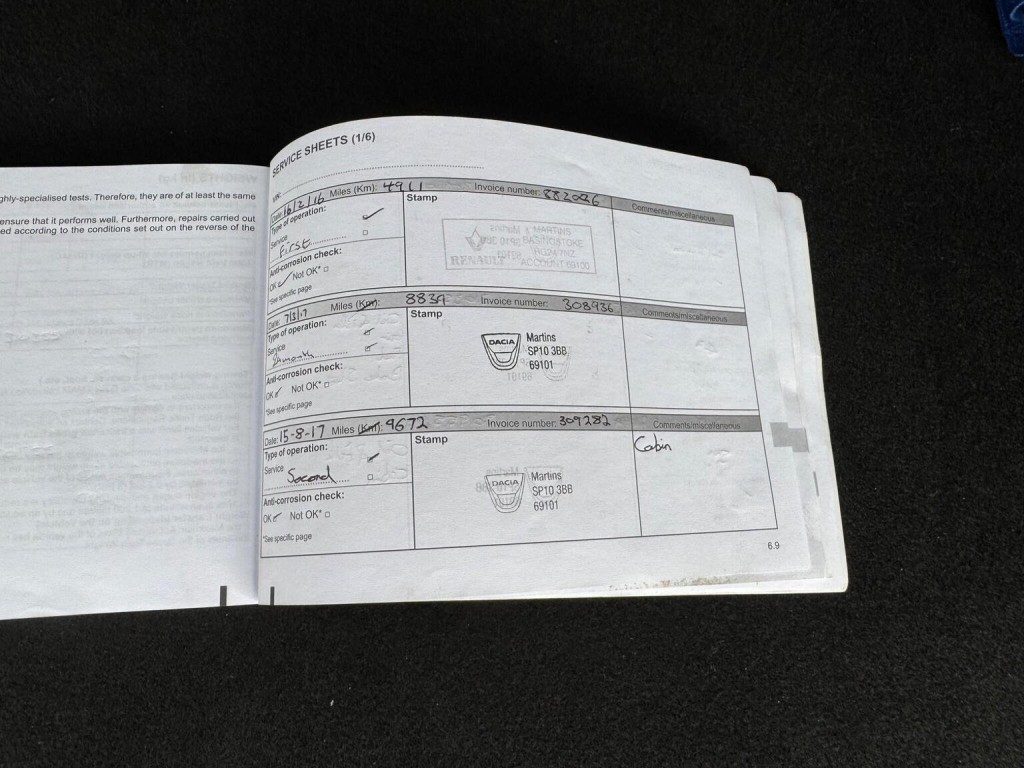 ghly-specialised tests. Therefore, they are of at least the same
ensure that it performs well. Furthermore, repairs carried out
ed according to the conditions set out on the reverse of the
SERVICE SHEETS (1/6)
VIN:
Date: 16/2/16 Miles (Km): 4911 Invoice number: 882026 Comments/miscellaneous
Type of operation: Stamp
Service
First
Anti-corrosion check:
OK Not OK*
*See specific page
MARTINS
BASINGSTOKE
RENAULT ACCOUNT
Date: 7/3/17 Miles (Km): 8839 Invoice number: 308936 Comments/miscellaneous
Type of operation: Stamp
Service
Anti-corrosion check:
OK Not OK*
*See specific page
DACIA Martins
SP10 3BB
69101
Date: 15-8-17 Miles (Km): 9672 Invoice number: 309282 Comments/miscellaneous
Type of operation: Stamp Cabin
Service Second
Anti-corrosion check:
OK Not OK*
*See specific page
DACIA Martins
SP10 3BB
69101
6.9